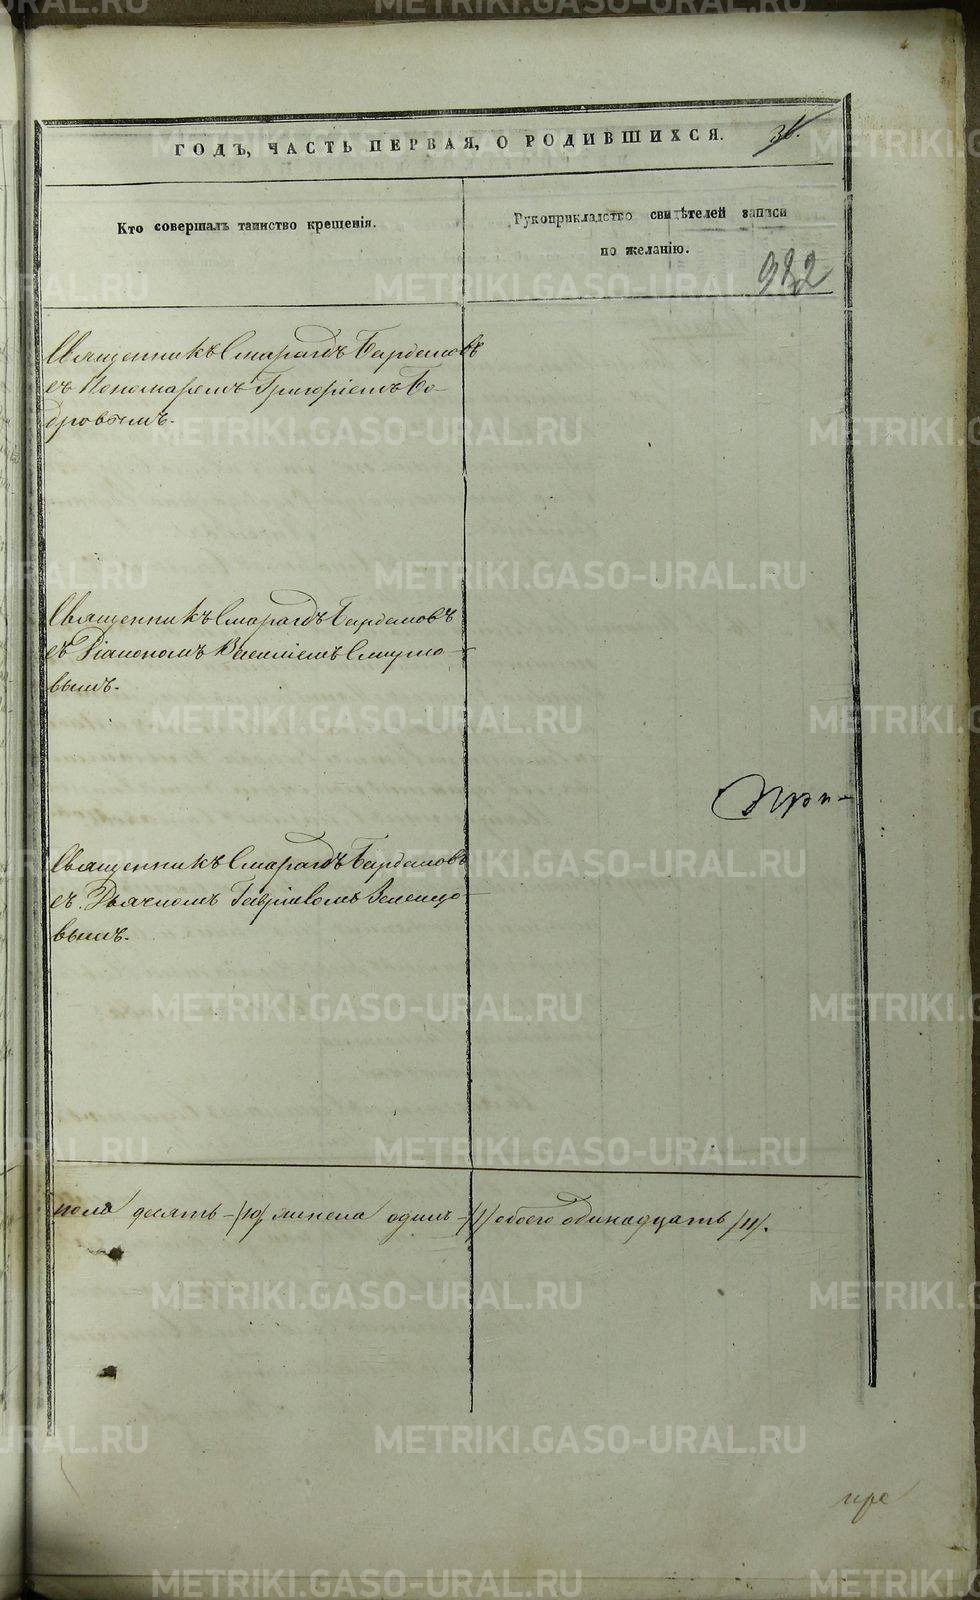 ГОДЪ, ЧАСТЬ ПЕРВАЯ, О РОДИВШИХСЯ.
31.
Кто совершалъ таинство крещенія.
Рукоприкладство свидѣтелей записи
по желанію.
932
Священникъ Смарагдъ Бардамовъ
съ Пономаремъ Григоріемъ Бо-
дровымъ.
Священникъ Смарагдъ Бардамовъ
съ Діакономъ Василіемъ Смирно-
вымъ.
При-
Священникъ Смарагдъ Бардамовъ
съ Дьячкомъ Гавріиломъ Зеленцо-
вымъ.
пола десять - /10/, женска одинъ - /1/ обоего одинадцать /11/.
METRIKI.GASO-URAL.RU